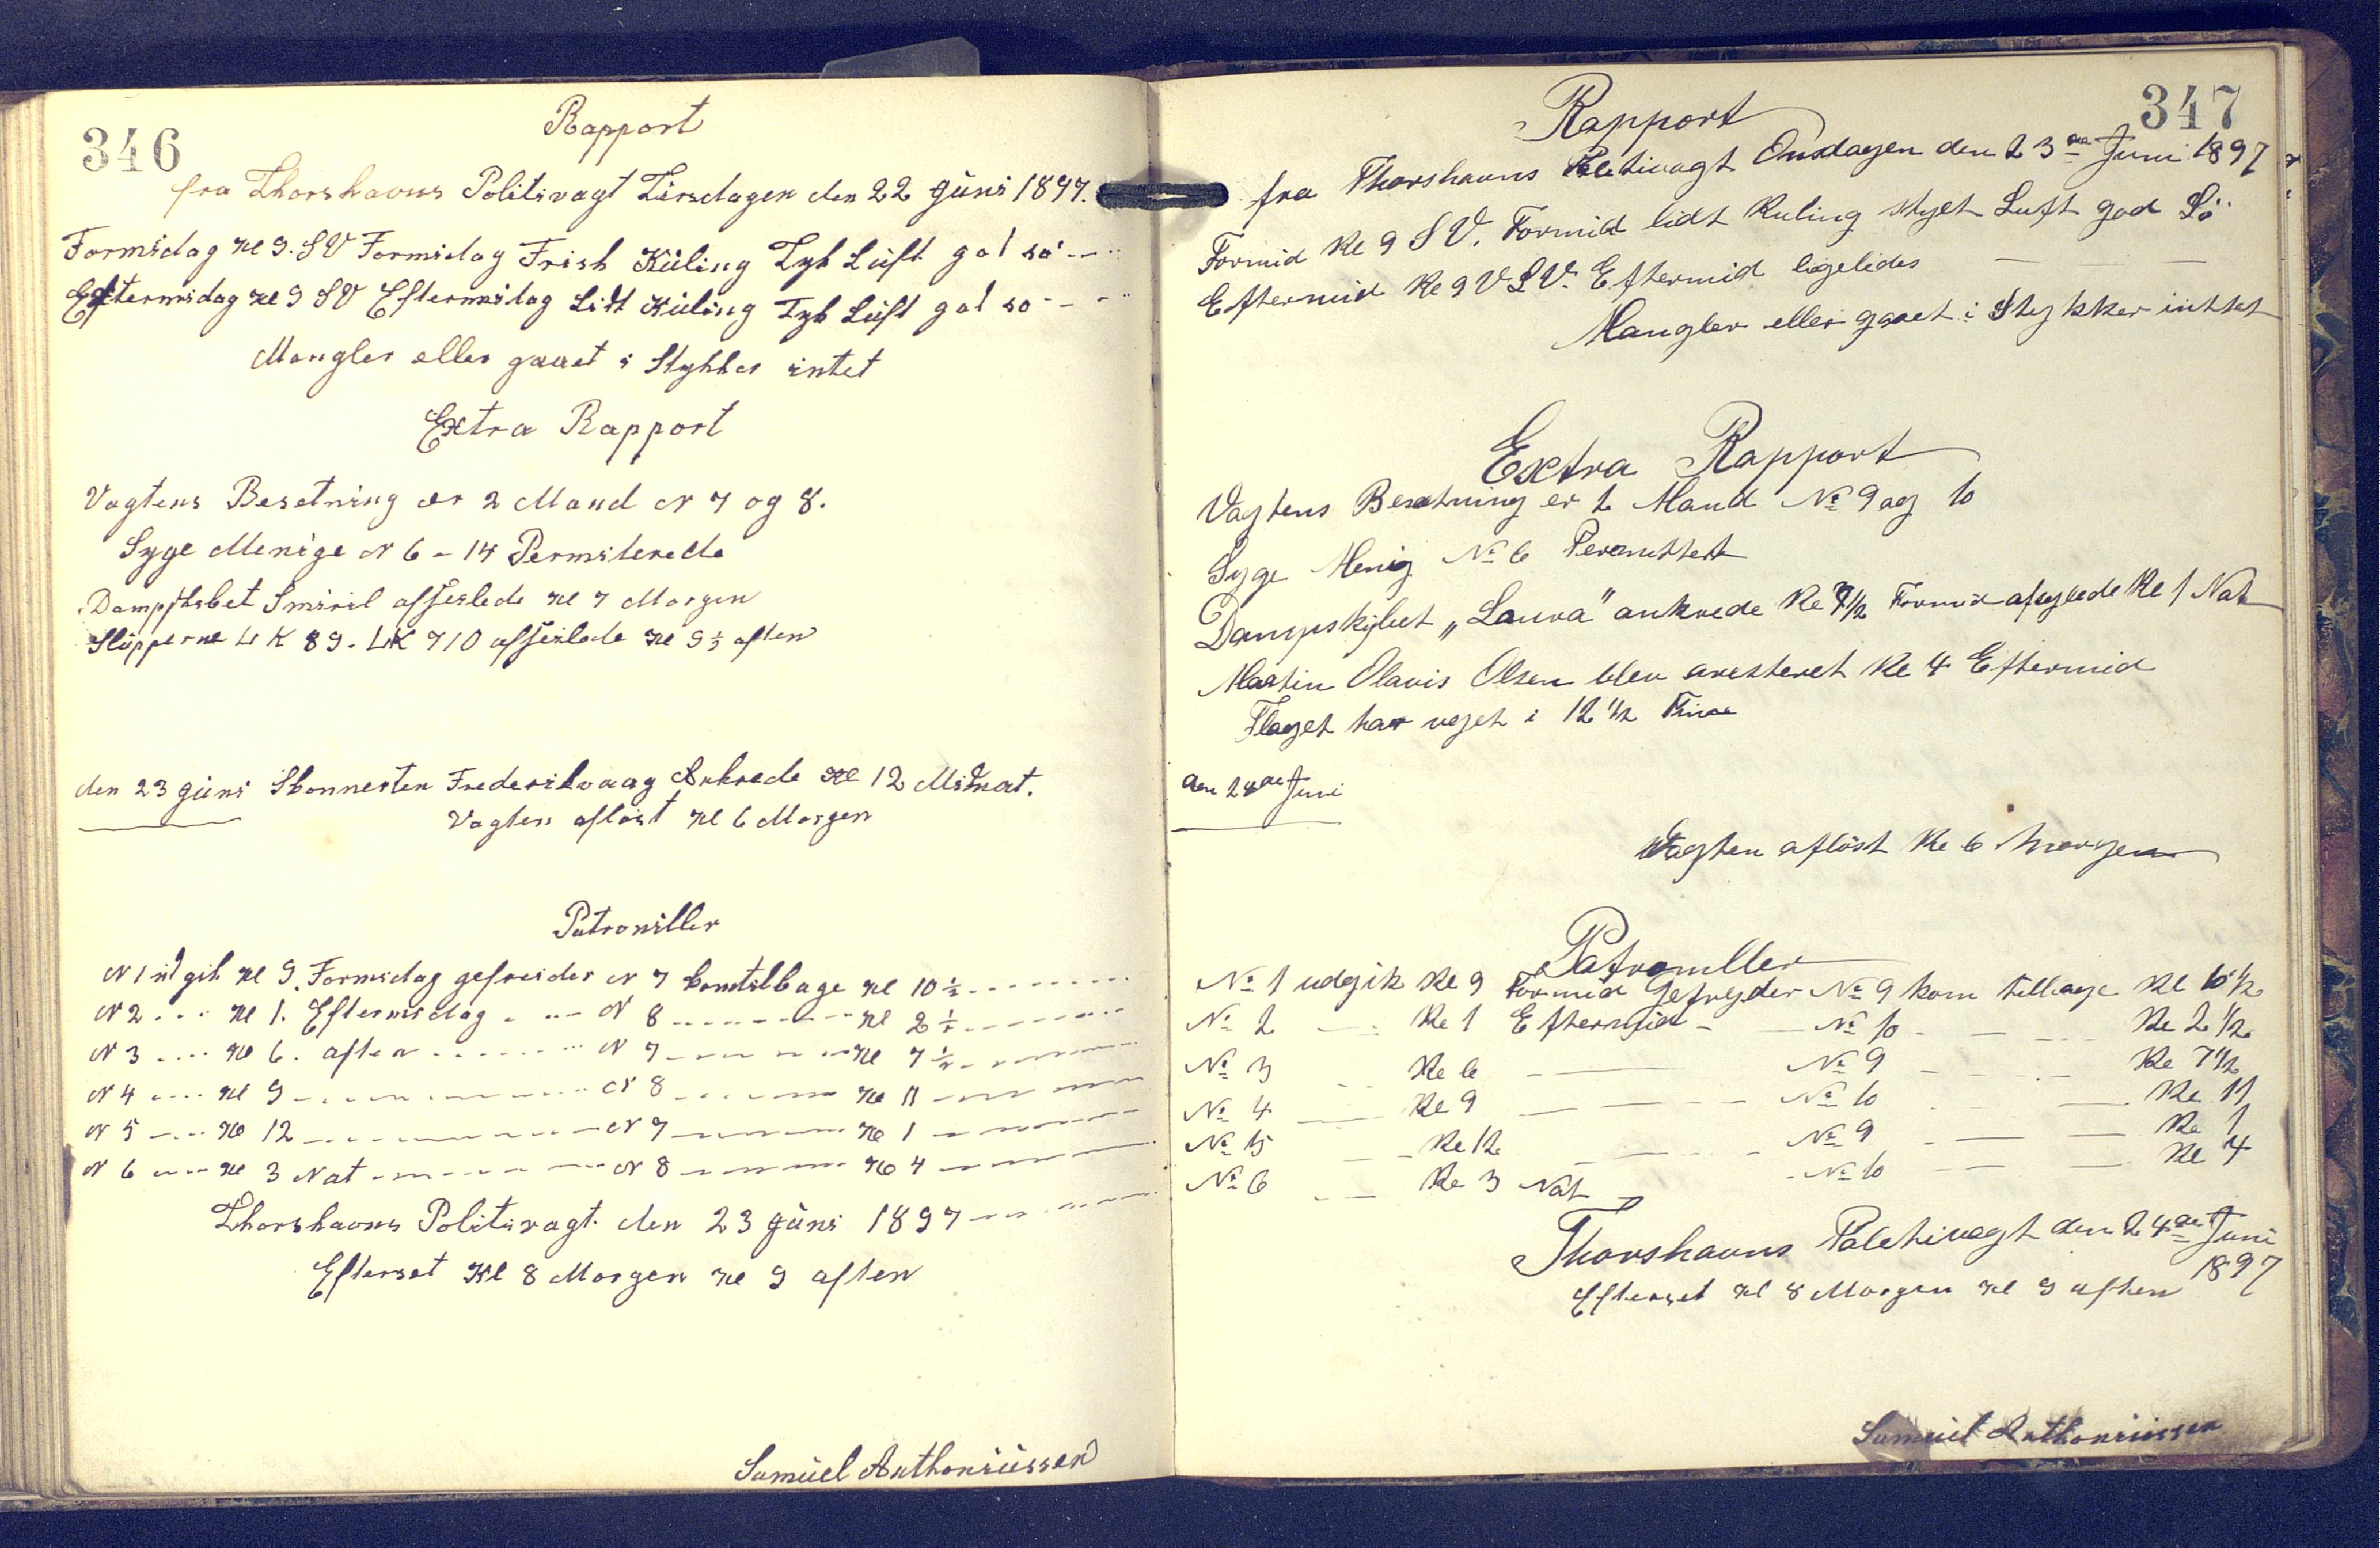 346
Rapport
fra Thorshavns Politivagt Tirsdagen den 22 Juni 1897.
Formidag Kl 9. SV Formidag Frisk Kuling Tyk Luft god sö
Eftermidag Kl 9 SV Eftermidag Lidt Kuling Tyk Luft god so
Mangler eller gaaet i Stykker intet
Extra Rapport
Vagtens Besetning er 2 Mand N 7 og 8.
Syge Menige N 6 - 14 Permiterede
Dampskbet Smiril afseilede Kl 7 Morgen
Slupperne LK 89. LK 710 afseilede Kl 9 ½ aften
den 23 Juni Skonnerten Frederikvaag Ankrede Kl 12 Midnat.
Vagten aflöst Kl 6 Morgen
Patroniller
N 1 ud gik Kl 9. Formidag gefreider N 7 komtilbage Kl 10 ½
N 2 Kl 1. Eftermidag N 8 Kl 2 ½
N 3 Kl 6. aften N 7 Kl 7 ½
N 4 Kl 9 N 8 Kl 11
N 5 Kl 12 N 7 Kl 1
N 6 Kl 3 Nat N 8 Kl 4
Thorshavns Politivagt. den 23 Juni 1897
Efterset Kl 8 Morgen Kl 9 aften
Samuel Anthoniussen
347
Rapport
fra Thorshavns Poletivagt Onsdagen den 23de Juni 1897
Formid Kl 9 SV. Formid lidt Kuling skyet Luft god Sö
Eftermid Kl 9 VSV. Eftermid ligeledes
Mangler eller gaaet i Stykker inttet
Extra Rapport
Vagtens Besætning er 2 Mand No 9 og 10
Syge Menig No 6 Permittert
Dampskibet „Laura" ankrede Kl 7½ Formid afsejlede Kl 1 Nat
Martin Olavis Olsen blev aresteret Kl 4 Eftermid
Flaget har vejet i 12 ½ Time
den 24de Juni
Vagten aflöst Kl 6 Morgen
Patrouller
No 1 udgik Kl 9 Formid Gefrejder No 9 kom tilbage Kl 10 ½
No 2 Kl 1 Eftermid No 10 Kl 2 ½
No 3 Kl 6 No 9 Kl 7 ½
No 4 Kl 9 No 10 Kl 11
No 5 Kl 12 No 9 Kl 1
No 6 Kl 3 Nat No 10 Kl 4
Thorshavns Poletivagt den 24de Juni
1897
Efterset Kl 8 Morgen Kl 9 aften
Samuel Anthoniussen